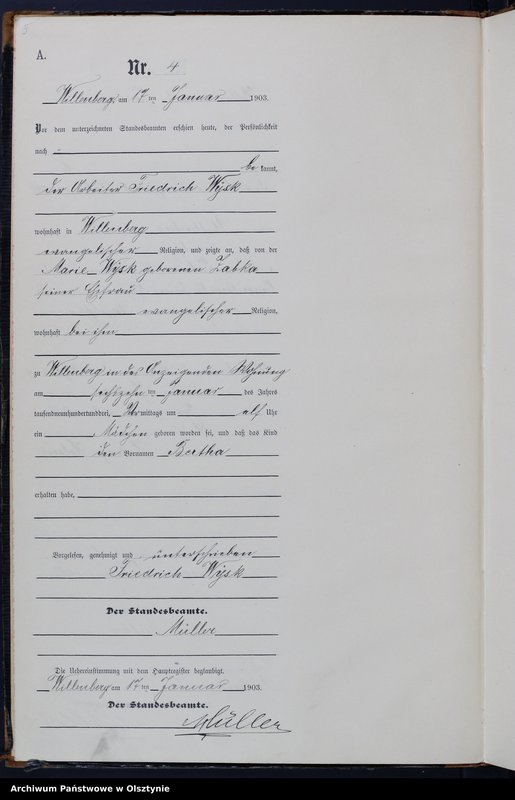 A.
Nr. 4
Willenberg am 17 ten Januar 1903.
Vor dem unterzeichneten Standesbeamten erschien heute, der Persönlichkeit
nach
be kannt,
der Arbeiter Friedrich Wysk
wohnhaft in Willenberg
evangelischer Religion, und zeigte an, daß von der
Marie Wysk geborenen Zabka
seiner Ehefrau
evangelischer Religion,
wohnhaft bei ihm
zu Willenberg in des Anzeigenden Wohnung
am sechszehn ten Januar des Jahres
tausendneunhundertunddrei, Vor mittags um elf Uhr
ein Mädchen geboren worden sei, und daß das Kind
den Vornamen Bertha
erhalten habe,
Vorgelesen, genehmigt und unterschrieben
Friedrich Wysk
Der Standesbeamte.
Müller
Die Uebereinstimmung mit dem Hauptregister beglaubigt.
Willenberg am 17 ten Januar 1903.
Der Standesbeamte.
Müller
Archiwum Państwowe w Olsztynie